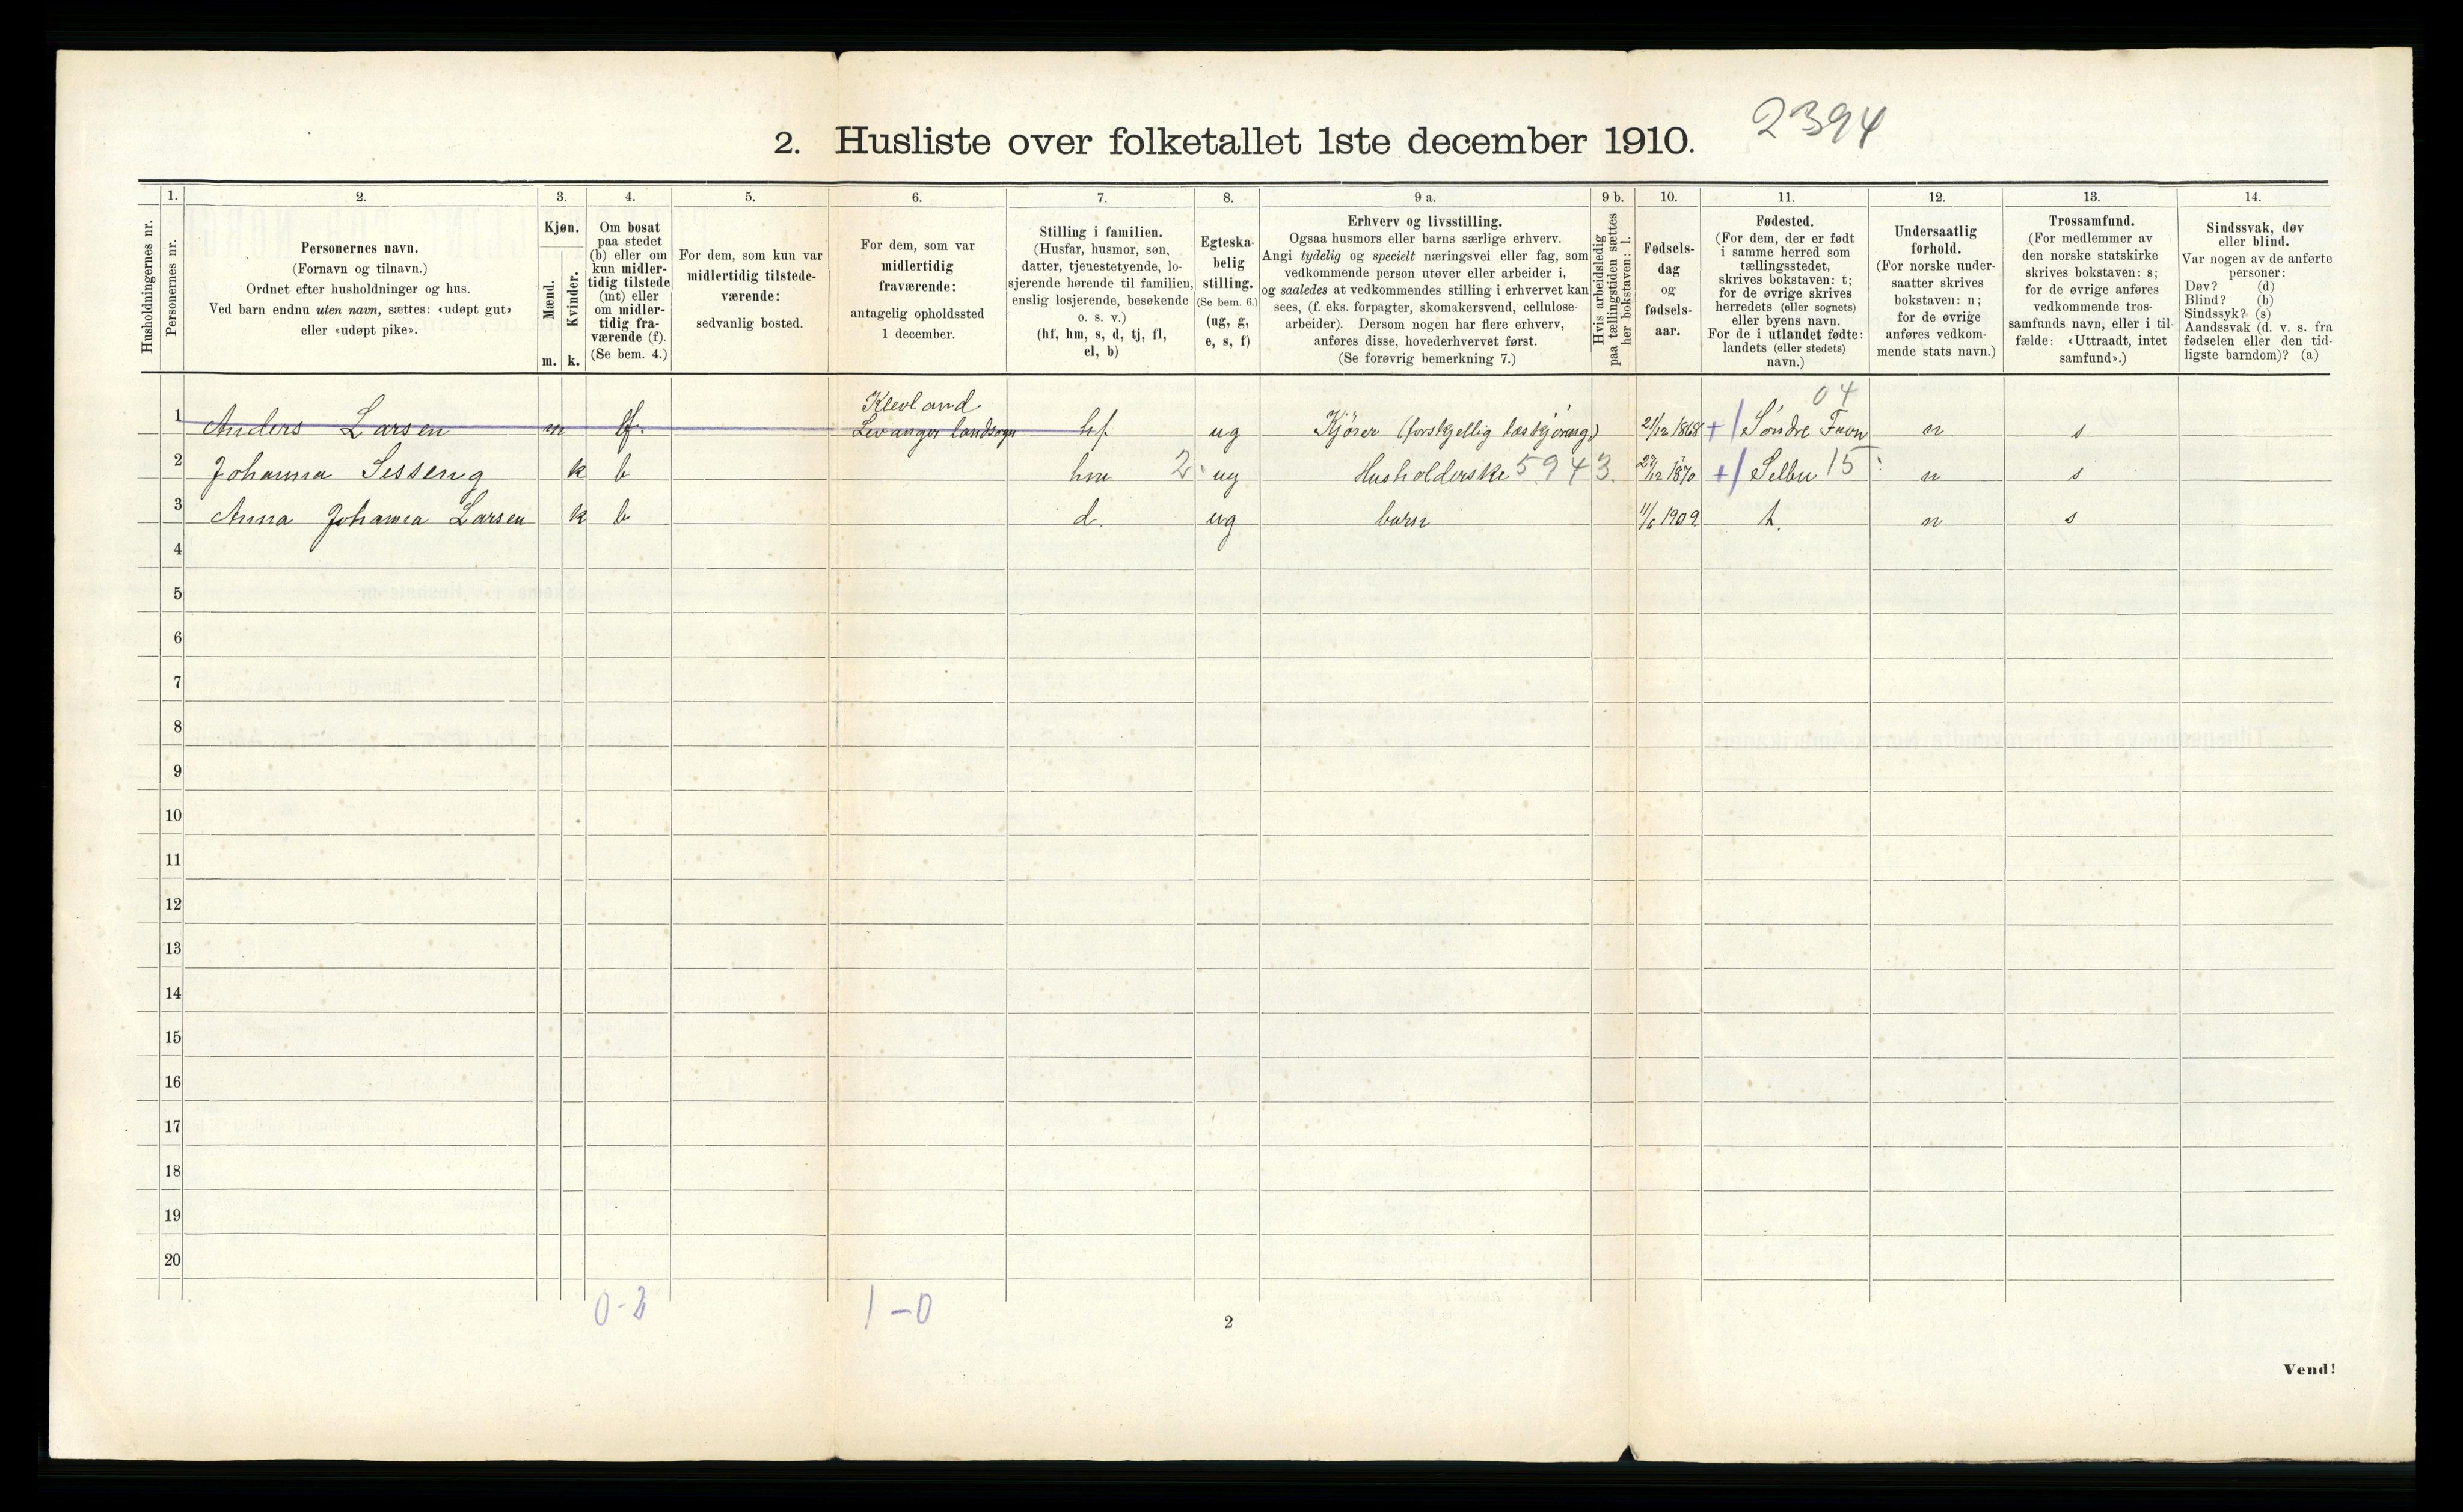 2. Husliste over folketallet 1ste december 1910. 2394
Husholdningernes nr.
1.
Personernes nr.
2.
Personernes navn.
(Fornavn og tilnavn.)
Ordnet efter husholdninger og hus.
Ved barn endnu uten navn, sættes: «udøpt gut»
eller «udøpt pike».
3.
Kjøn.
Mænd.
Kvinder.
m. k.
4.
Om bosat
paa stedet
(b) eller om
kun midler-
tidig tilstede
(mt) eller
om midler-
tidig fra-
værende (f).
(Se bem. 4.)
5.
For dem, som kun var
midlertidig tilstede-
værende:
sedvanlig bosted.
6.
For dem, som var
midlertidig
fraværende:
antagelig opholdssted
1 december.
7.
Stilling i familien.
(Husfar, husmor, søn,
datter, tjenestetyende, lo-
sjerende hørende til familien,
enslig losjerende, besøkende
o. s. v.)
(hf, hm, s, d, tj, fl,
el, b)
8.
Egteska-
belig
stilling.
(Se bem. 6.)
(ug, g,
e, s, f)
9 a.
Erhverv og livsstilling.
Ogsaa husmors eller barns særlige erhverv.
Angi tydelig og specielt næringsvei eller fag, som
vedkommende person utøver eller arbeider i,
og saaledes at vedkommendes stilling i erhvervet kan
sees, (f. eks. forpagter, skomakersvend, cellulose-
arbeider). Dersom nogen har flere erhverv,
anføres disse, hovederhvervet først.
(Se forøvrig bemerkning 7.)
9 b.
Hvis arbeidsledig
paa tællingstiden sættes
her bokstaven: l.
10.
Fødsels-
dag
og
fødsels-
aar.
11.
Fødested.
(For dem, der er født
i samme herred som
tællingsstedet,
skrives bokstaven: t;
for de øvrige skrives
herredets (eller sognets)
eller byens navn.
For de i utlandet fødte:
landets (eller stedets)
navn.)
12.
Undersaatlig
forhold.
(For norske under-
saatter skrives
bokstaven: n;
for de øvrige
anføres vedkom-
mende stats navn.)
13.
Trossamfund.
(For medlemmer av
den norske statskirke
skrives bokstaven: s;
for de øvrige anføres
vedkommende tros-
samfunds navn, eller i til-
fælde: «Uttraadt, intet
samfund».)
14.
Sindssvak, døv
eller blind.
Var nogen av de anførte
personer:
Døv? (d)
Blind? (b)
Sindssyk? (s)
Aandssvak (d. v. s. fra
fødselen eller den tid-
ligste barndom)? (a)
Klevland 04
1 Anders Larsen m f. Levanger landsogn hf ug Kjører (forskjellig læskjöring) 21/12 1868 + Søndre Favn n s
2 Johanna Sesseng k b hm 2 ug Husholderske 5943. 27/12 1870 + Selbu 15 n s
3 Anna Johanna Larsen k b d. ug barn 11/6 1909 t. n s
4
5
6
7
8
9
10
11
12
13
14
15
16
17
18
19
20
0-2 1-0
2
Vend!